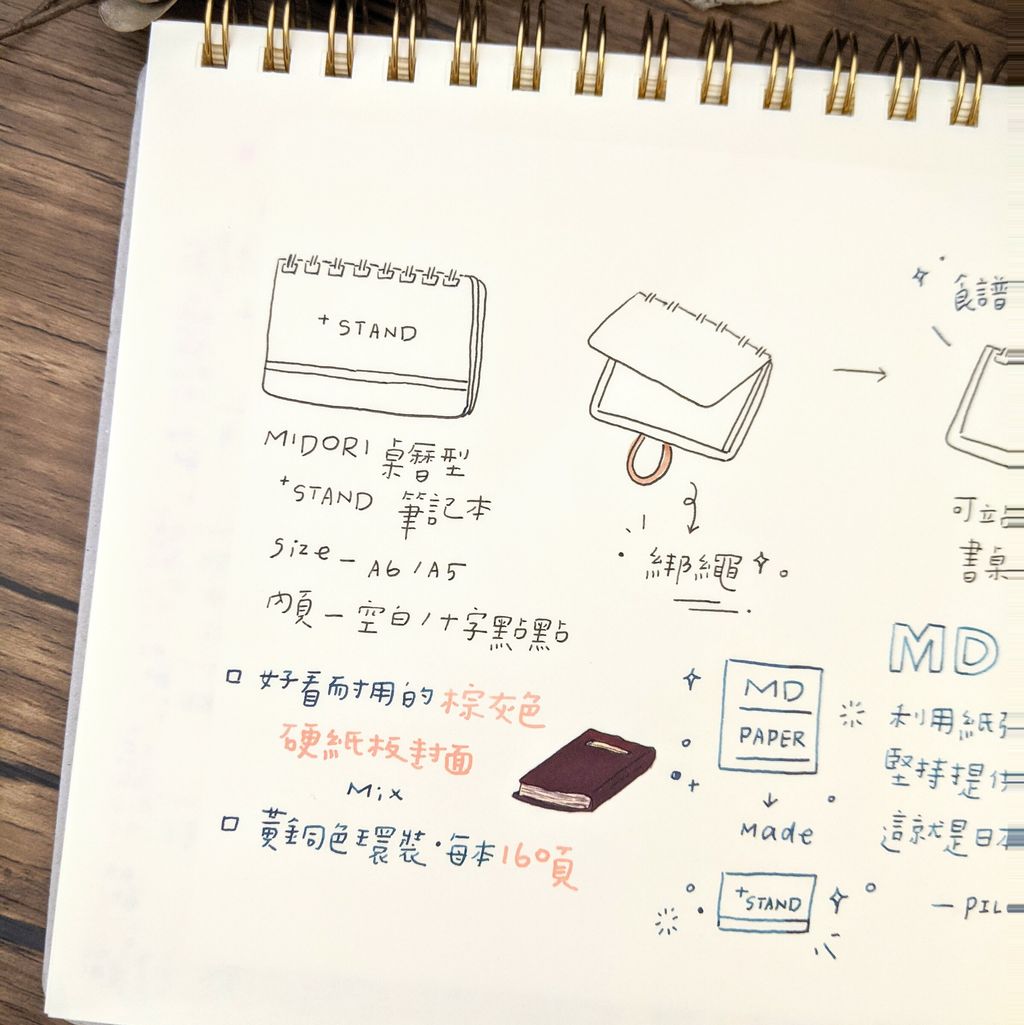 +STAND
MIDORI 桌曆型
+STAND 筆記本
size - A6 / A5
內頁 - 空白 / 十字點點
綁繩
食譜
可立
書桌
□ 好看而耐用的棕灰色
硬紙板封面
Mix
□ 黃銅色環裝・每本160頁
MD
PAPER
↓
Made
+STAND
MD
利用紙
堅持提供
這就是日本
- PIL